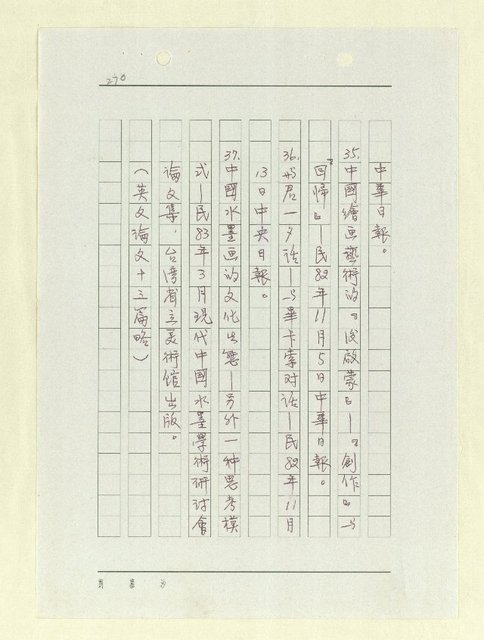 270
中華日報。
35.中國繪画藝術的『後啟蒙』—『創作』与
『回帰』—民82年11月5日中華日報。
36.与君一夕话—与畢卡索对话—民82年11月
13日中央日報。
37.中國水墨画的文化生態—另外一种思考模
式—民83年3月現代中國水墨學術研討會
論文集，台湾省立美術館出版。
(英文論文十三篇略)